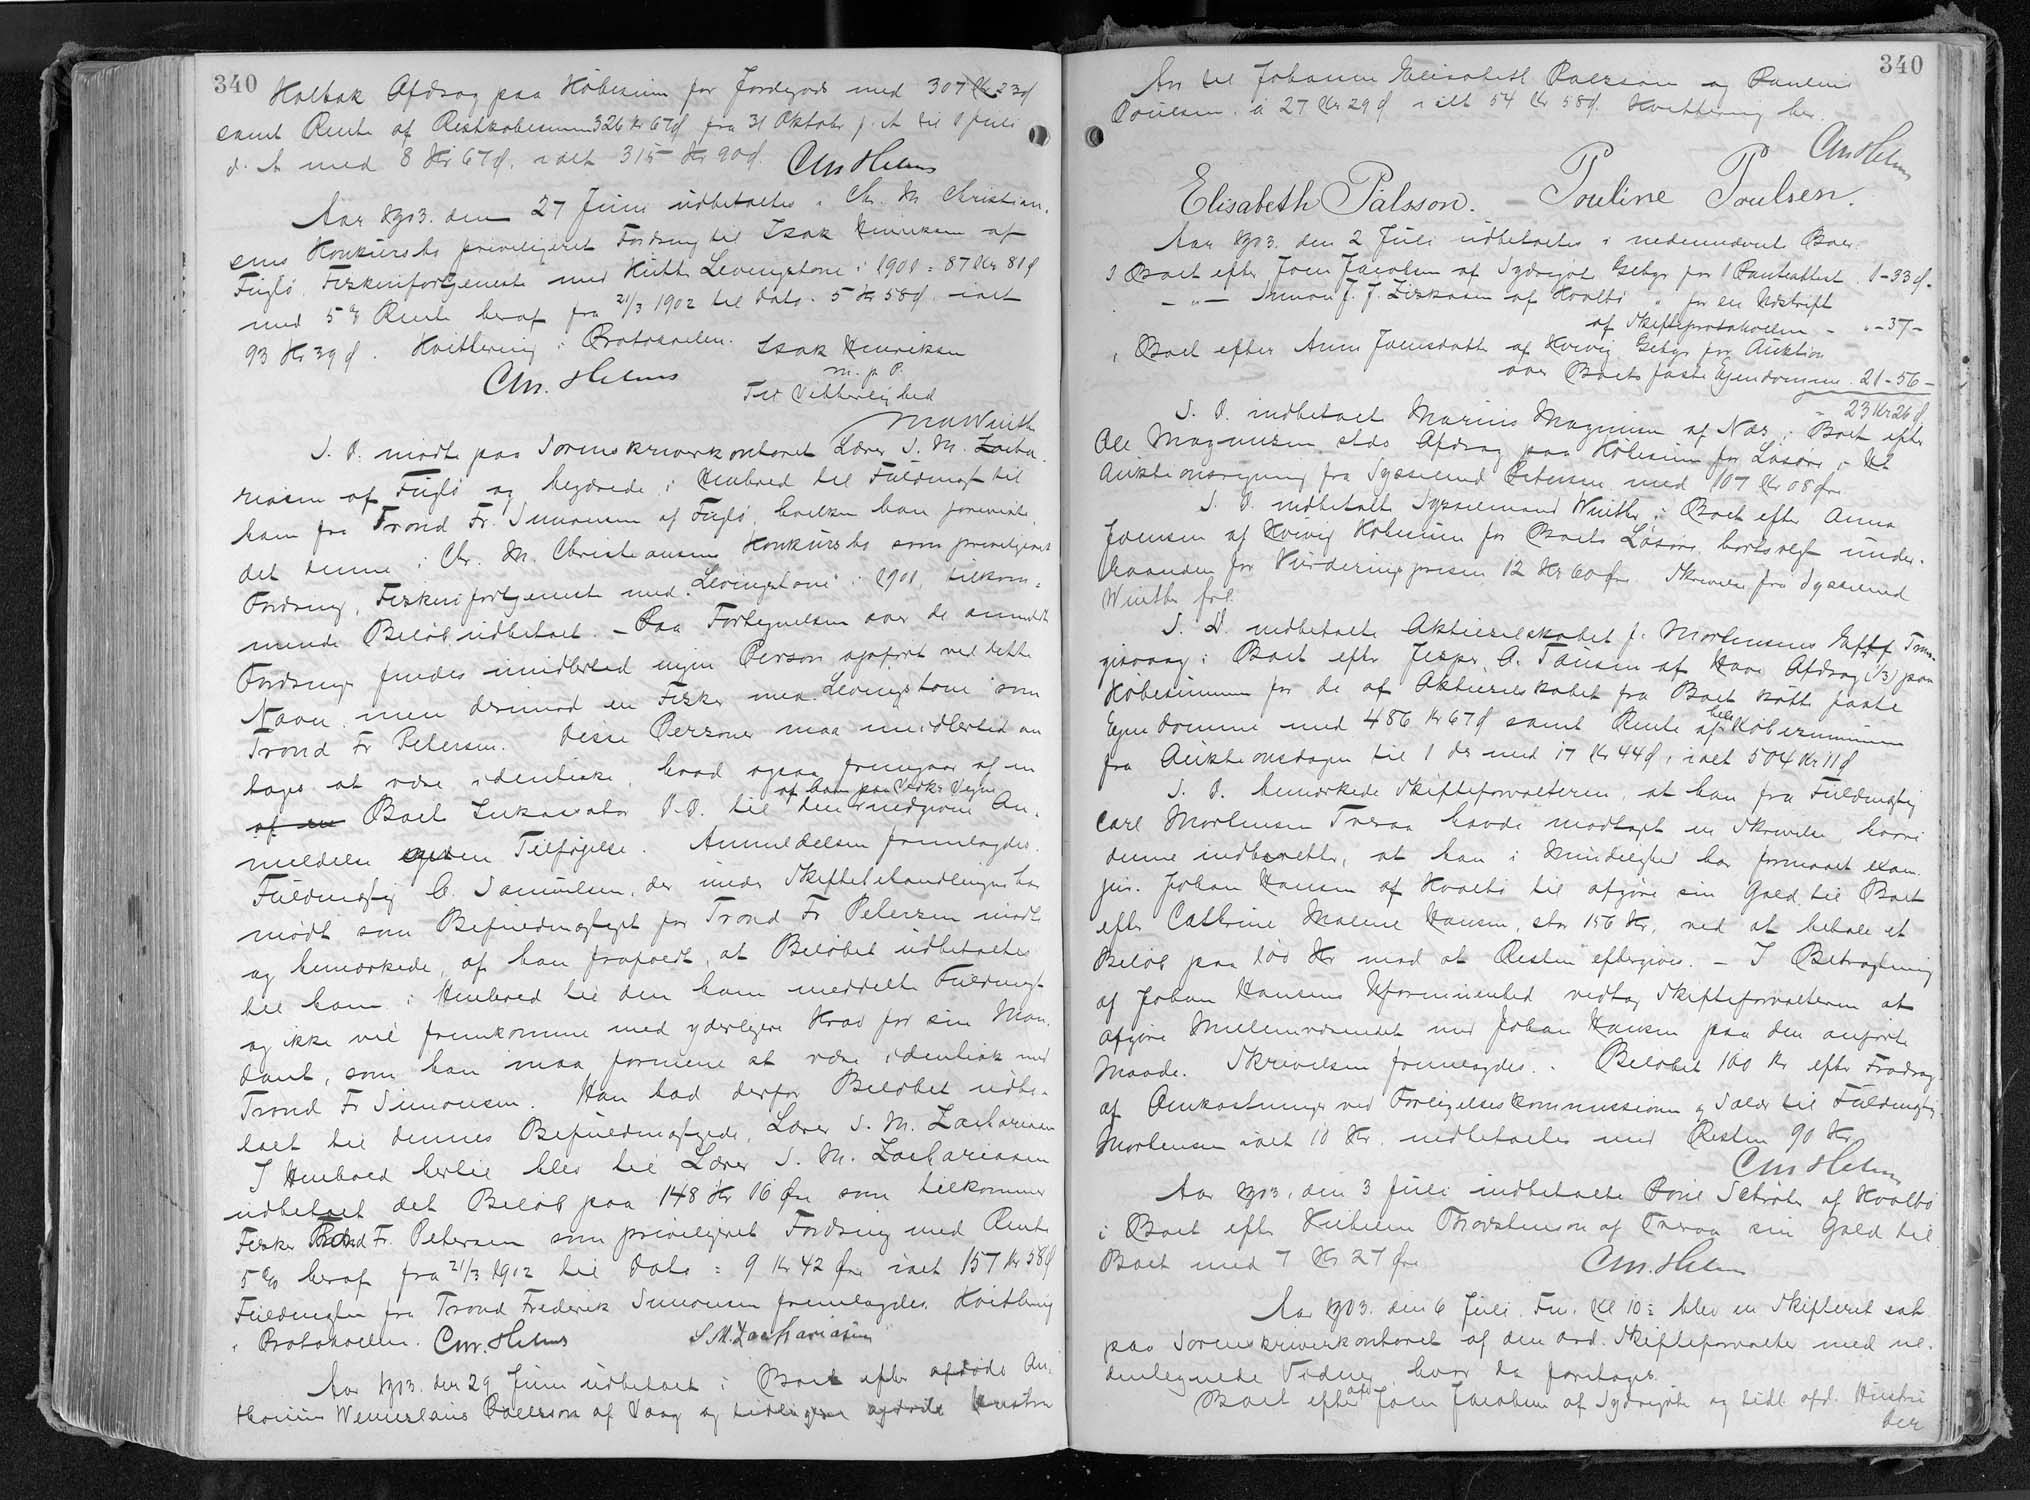 340
Holbæk Afdrag paa Købesum for Jordegods med 307 Kr 23 ø
samt Rente af Restkøbesum 326 Kr 67 ø fra 31 Oktober f. A til 1 Juli
d. A med 8 Kr 67 ø, ialt 315 Kr 90 ø. Chr Helms
Aar 1903. den 27 Juni udbetaltes i Chr. M Christian-
sens Konkursbo privilegeret Fordring til Isak Henriksen af
Fuglø. Fiskerifortjeneste med Kutter Levingstone i 1901 = 87 Kr 81 ø
med 5 % Rente heraf fra 21/3 1902 til Dato. 5 Kr 58 ø. ialt
93 Kr 39 ø. Kvittering i Protocollen. Isak Henriksen
m. p. P.
Chr. Helms
Til Vitterlighed
MWinther
S. D. mødte paa Sorenskriverkontoret Lærer S. M. Zacha-
riasen af Fuglø og begærede i Henhold til Fuldmagt til
ham fra Trond Fr. Simonsen af Fuglø, hvilken han foreviste,
det denne i Chr. M. Christiansens Konkursbo som privilegeret
Fordring, Fiskerifortjeneste med "Levingstone" i 1901, tilkom-
mende Beløb udbetalt. – Paa Fortegnelsen over de anmeldte
Fordringer findes imidlertid ingen Person opført ved dette
Navn, men derimod en Fisker med "Levingstone" som
Trond Fr Petersen. Disse Personer maa imidlertid an-
tages at være identiske, hvad ogsaa fremgaar af en
af en Boets Inkassator D.D. til den af ham paa Vedk. Vegne indgivne An-
meldelse given Tilføjelse. Anmeldelsen fremlagdes.
Fuldmægtig C. Samuelsen, der under Skiftebehandlingen har
mødt som Befuldmægtiget for Trond Fr Petersen mødte
og bemærkede, at han frafaldt, at Beløbet udbetaltes
til ham i Henhold til den ham meddelte Fuldmagt
og ikke vil fremkomme med yderligere Krav for sin Man-
dant, som han maa formene at være identisk med
Trond Fr Simonsen. Han bad derfor Beløbet udbe-
talt til dennes Befuldmægtigede, Lærer S. M. Zachariasen
I Henhold hertil blev til Lærer S. M. Zachariasen
udbetalt det Beløb paa 148 Kr 16 Øre som tilkommer
Fisker Trond Fr. Petersen som privilegeret Fordring med Rente
5 % heraf fra 21/3 1902 til Dato = 9 Kr 42 Øre ialt 157 Kr 58 ø
Fuldmagten fra Trond Frederik Simonsen fremlagdes. Kvittering
i Protokollen. Chr. Helms S. M. Zachariasen
Aar 1903. den 29 Juni udbetalt i Boet efter afdøde An-
Wenserlaus Poulson af Vaag og tidligere afdøde Hustru
340
Arv til Johanne Elisabeth Poulson og Pauline
Poulsen. á 27 Kr 29 ø ialt 54 Kr 58 ø. Kvittering her.
Chr Helms
Elisabeth Pálsson. – Pouline Poulsen.
Aar 1903. den 2 Juli udbetaltes i nedennævnte Boer
I Boet efter Joen Jacobsen af Sydrygøte Gebyr for 1 Panteattest 1 – 33 ø.
– " – Simon J. J. Ziskason af Hvalbø " for en Udskrift
af Skifteprotokollen – " – 37 –
i Boet efter Anna Joensdatter af Kvivig Gebyr for Auktion
over Boets faste Ejendomme 21 – 56 –
23 Kr 26 ø
S. D. indbetalt Marius Magnusen af Næs i Boet efter
Ole Magnusen sted Afdrag paa Købesum for Løsøre i Hl
Auktionsregning fra Sysselmd Petersen med 107 Kr 08 Øre.
S. D. indbetalt Sysselmand Winther i Boet efter Anna
Joensen af Kvivig Købesum for Boets Løsøre bortsolgt under-
haanden for Vurderingsprisen 12 Kr 60 Øre. Skrivelse fra Sysselmd
Winther frl.
S. D. indbetalte Aktieselskabet J. Mortensens Eftf Tran-
gisvaag i Boet efter Jesper A. Tausen af Hove Afdrag (1/3) paa
Købesummen for de af Aktieselskabet fra Boet købte faste
Ejendomme med 486 Kr 67 ø samt Rente af hele Købesummen
fra Auktionsdagen til 1 ds med 17 Kr 44 ø, ialt 504 Kr 11 ø
S. D. bemærkede Skifteforvalteren, at han fra Fuldmægtig
Carl Mortensen Tveraa havde modtaget en Skrivelse, hvori
denne indberetter, at han i Mindelighed har formaaet exam.
jur. Johan Hansen af Hvalbø til afgøre sin Gæld til Boet
efter Cathrine Malene Hansen, stor 156 Kr, ved at betale et
Beløb paa 100 Kr mod at Resten eftergives. – I Betragtning
af Johan Hansens Uformuenhed vedtog Skifteforvalteren at
afgøre Mellemværendet med Johan Hansen paa den anførte
Maade. Skrivelsen fremlagdes. Beløbet 100 Kr efter Fradrag
af Omkostninger ved Forligelseskommissionen og Salær til Fuldmægtig
Mortensen ialt 10 Kr. indbetaltes med Resten 90 Kr
Chr Helms
Aar 1903, den 3 Juli indbetalte Poul Schrøter af Hvalbø
i Boet efter Vilhelm Thorstenson af Tveraa sin Gæld til
Boet med 7 Kr 27 Øre
Chr. Helms
Aar 1903. den 6 Juli. Fm. Kl 10 blev en Skifteret sat
paa Sorenskriverkontoret af den ord. Skifteforvalter med ne-
dentegnede Vidner, hvor da foretages
Boet efter afd Joen Jacobsen af Sydrygøte og tidl. afd. Hustru
der